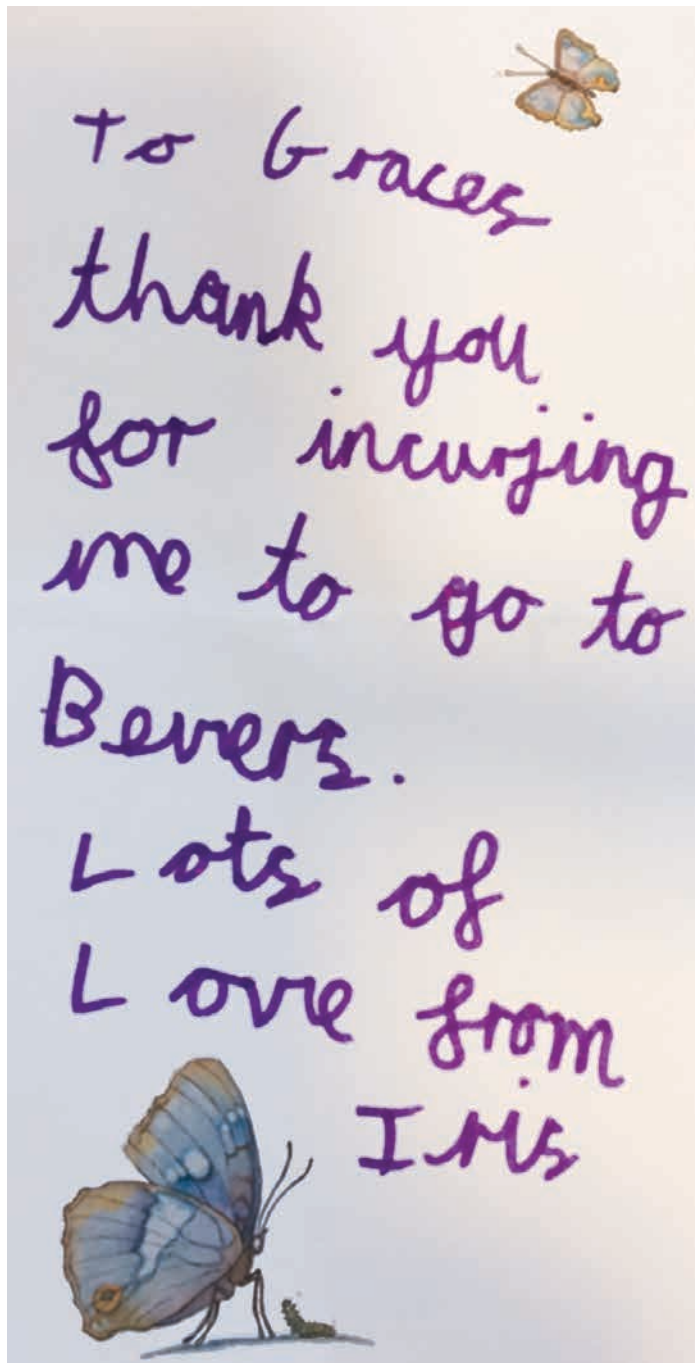 To Graces
thank you
for incurjing
me to go to
Bevers.
Lots of
Love from
Iris